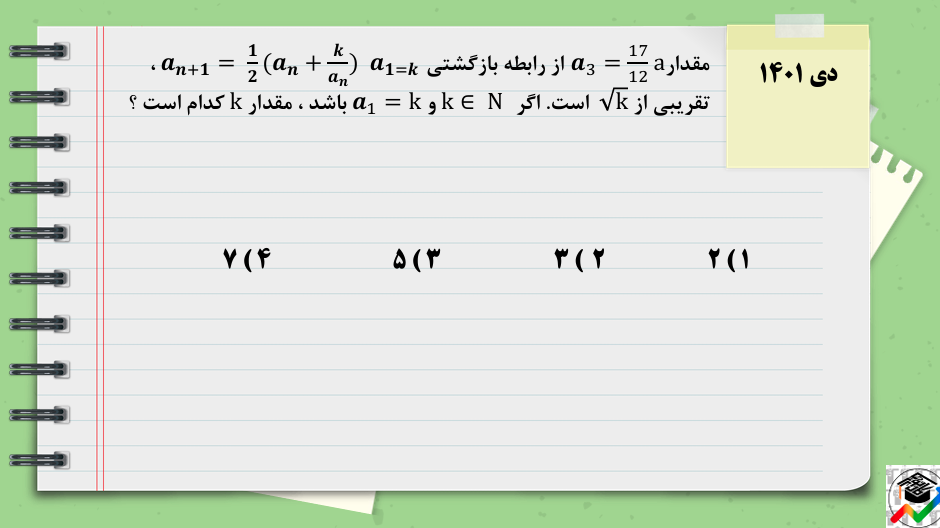 دی ۱۴۰۱
مقدار a a₃ = 17/12 از رابطه بازگشتی a₁₌ₖ aₙ₊₁ = 1/2 (aₙ + k/aₙ) ،
تقریبی از √k است. اگر k ∈ N و a₁ = k باشد ، مقدار k کدام است ؟
۱ ) ۲
۲ ) ۳
۳ ) ۵
۴ ) ۷